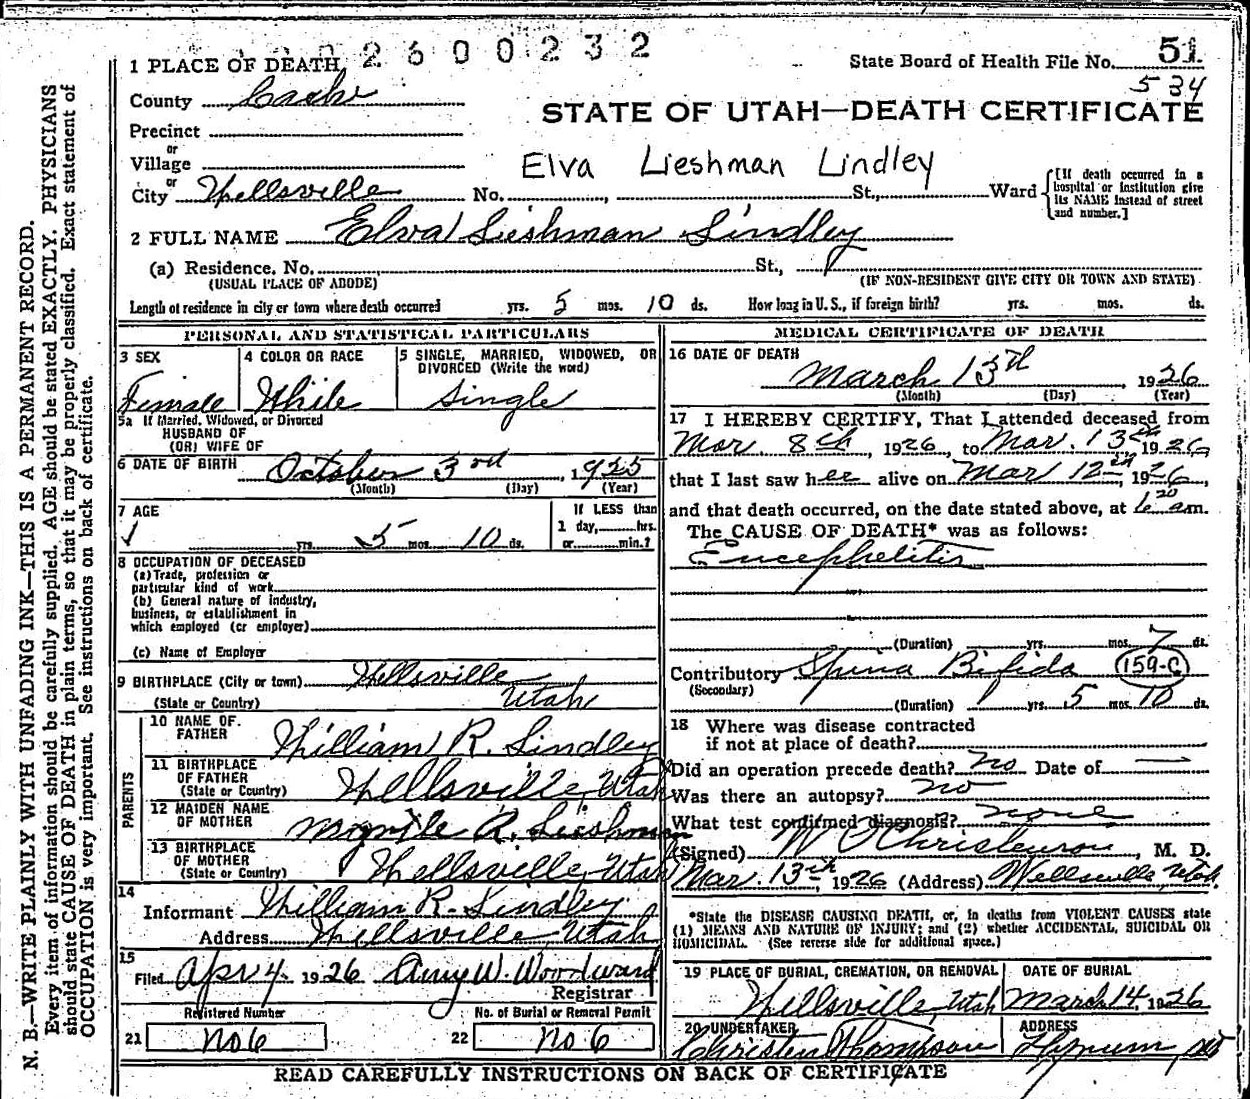 2600232
1 PLACE OF DEATH
State Board of Health File No. 51
534
County Cache
STATE OF UTAH—DEATH CERTIFICATE
Precinct
or
Village
Elva Lieshman Lindley
or
City Wellsville No. , St., Ward
[If death occurred in a hospital or institution give its NAME instead of street and number.]
2 FULL NAME Elva Lieshman Lindley
(a) Residence. No. St.,
(USUAL PLACE OF ABODE) (IF NON-RESIDENT GIVE CITY OR TOWN AND STATE)
Length of residence in city or town where death occurred yrs. 5 mos. 10 ds. How long in U. S., if foreign birth? yrs. mos. ds.
PERSONAL AND STATISTICAL PARTICULARS
3 SEX
Female
4 COLOR OR RACE
White
5 SINGLE, MARRIED, WIDOWED, OR
DIVORCED (Write the word)
Single
5a If Married, Widowed, or Divorced
HUSBAND OF
(OR) WIFE OF
6 DATE OF BIRTH October 3rd, 1925
(Month) (Day) (Year)
7 AGE
yrs. 5 mos. 10 ds.
If LESS than
1 day, hrs.
or min.?
8 OCCUPATION OF DECEASED
(a) Trade, profession or
particular kind of work
(b) General nature of industry,
business, or establishment in
which employed (or employer)
(c) Name of Employer
9 BIRTHPLACE (City or town) Wellsville
(State or Country) Utah
PARENTS
10 NAME OF
FATHER William R. Lindley
11 BIRTHPLACE
OF FATHER
(State or Country) Wellsville, Utah
12 MAIDEN NAME
OF MOTHER Myrtle R. Lieshman
13 BIRTHPLACE
OF MOTHER
(State or Country) Wellsville, Utah
14
Informant William R. Lindley
Address Wellsville, Utah
15
Filed Apr 4. 1926 Amy W. Woodward
Registrar
Registered Number No. of Burial or Removal Permit
21 No 6 22 No 6
MEDICAL CERTIFICATE OF DEATH
16 DATE OF DEATH
March 13th, 1926
(Month) (Day) (Year)
17 I HEREBY CERTIFY, That I attended deceased from
Mar. 8th, 1926, to Mar. 13th, 1926
that I last saw her alive on Mar 12th, 1926,
and that death occurred, on the date stated above, at 6 20 am.
The CAUSE OF DEATH* was as follows:
Encephelitis
(Duration) yrs. mos. 7 ds.
Contributory Spina Bifida 159-C
(Secondary)
(Duration) 1 yrs. 5 mos. 10 ds.
18 Where was disease contracted
if not at place of death?
Did an operation precede death? no Date of —
Was there an autopsy? no
What test confirmed diagnosis? none
(Signed) Christenson, M. D.
Mar. 13th, 1926 (Address) Wellsville, Utah.
*State the DISEASE CAUSING DEATH, or, in deaths from VIOLENT CAUSES state
(1) MEANS AND NATURE OF INJURY; and (2) whether ACCIDENTAL, SUICIDAL OR
HOMICIDAL. (See reverse side for additional space.)
19 PLACE OF BURIAL, CREMATION, OR REMOVAL
Wellsville, Utah
DATE OF BURIAL
March 14, 1926
20 UNDERTAKER
Christen Thompson
ADDRESS
Hyrum,
READ CAREFULLY INSTRUCTIONS ON BACK OF CERTIFICATE
N. B.—WRITE PLAINLY WITH UNFADING INK—THIS IS A PERMANENT RECORD.
Every item of information should be carefully supplied. AGE should be stated EXACTLY. PHYSICIANS
should state CAUSE OF DEATH in plain terms, so that it may be properly classified. Exact statement of
OCCUPATION is very important. See instructions on back of certificate.